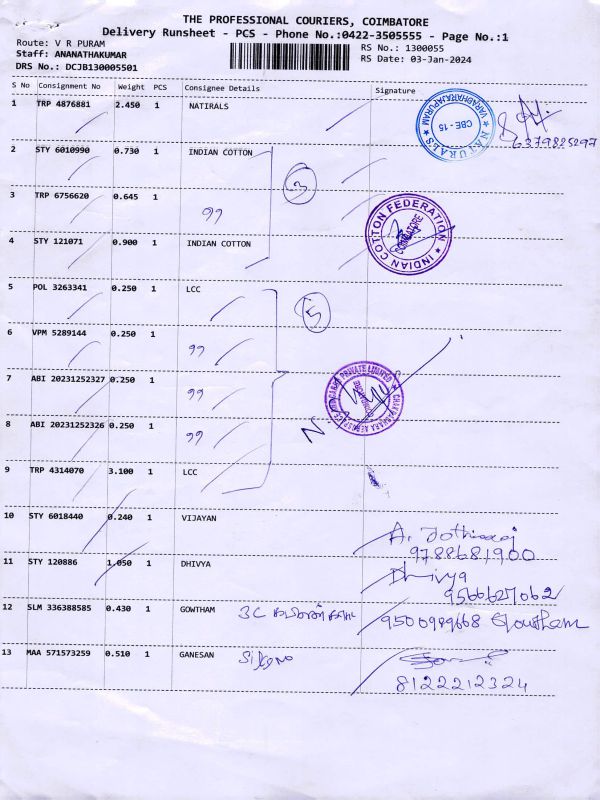 THE PROFESSIONAL COURIERS, COIMBATORE
Delivery Runsheet - PCS - Phone No.:0422-3505555 - Page No.:1
Route: V R PURAM
Staff: ANANATHAKUMAR
DRS No.: DCJB130005501
RS No.: 1300055
RS Date: 03-Jan-2024
S No Consignment No Weight PCS Consignee Details Signature
1 TRP 4876881 2.450 1 NATIRALS
NATURALS VARADHARAJAPURAM CBE - 15
6379825297
2 STY 6010990 0.730 1 INDIAN COTTON
3
3 TRP 6756620 0.645 1 ,,
INDIAN COTTON FEDERATION COIMBATORE
4 STY 121071 0.900 1 INDIAN COTTON
5 POL 3263341 0.250 1 LCC
5
6 VPM 5289144 0.250 1 ,,
7 ABI 20231252327 0.250 1 ,,
8 ABI 20231252326 0.250 1 ,,
PRIVATE LIMITED
9 TRP 4314070 3.100 1 LCC
10 STY 6018440 0.240 1 VIJAYAN A. Jothiraj
9788681900
11 STY 120886 1.050 1 DHIVYA Dhivya
9566627062
12 SLM 336388585 0.430 1 GOWTHAM 3C 9500949668 Gowtham
13 MAA 571573259 0.510 1 GANESAN
8122212324